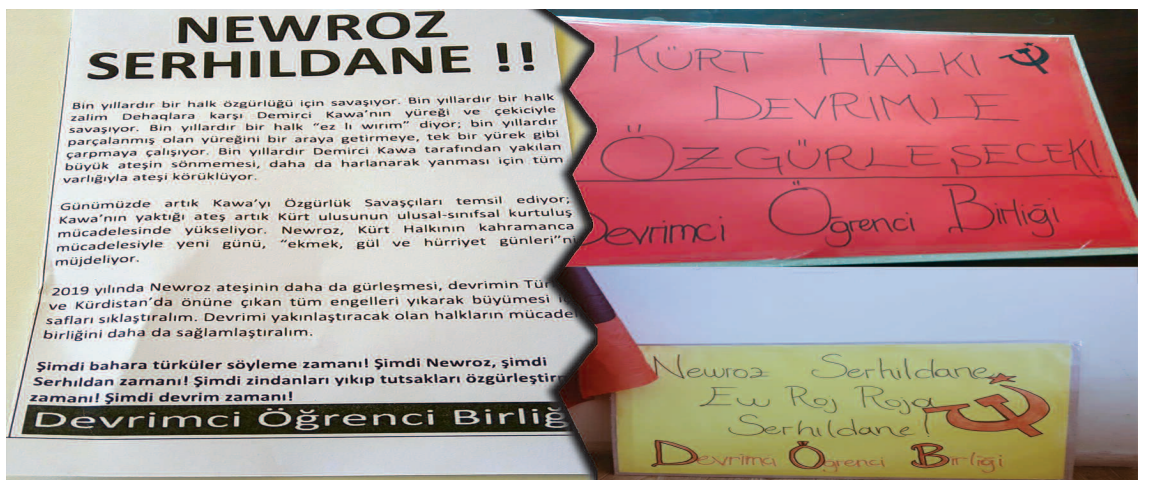 NEWROZ
SERHILDANE !!
Bin yıllardır bir halk özgürlüğü için savaşıyor. Bin yıllardır bir halk
zalim Dehaqlara karşı Demirci Kawa’nın yüreği ve çekiciyle
savaşıyor. Bin yıllardır bir halk “ez lı wırım” diyor; bin yıllardır
parçalanmış olan yüreğini bir araya getirmeye, tek bir yürek gibi
çarpmaya çalışıyor. Bin yıllardır Demirci Kawa tarafından yakılan
büyük ateşin sönmemesi, daha da harlanarak yanması için tüm
varlığıyla ateşi körüklüyor.
Günümüzde artık Kawa’yı Özgürlük Savaşçıları temsil ediyor;
Kawa’nın yaktığı ateş artık Kürt ulusunun ulusal-sınıfsal kurtuluş
mücadelesinde yükseliyor. Newroz, Kürt Halkının kahramanca
mücadelesiyle yeni günü, “ekmek, gül ve hürriyet günleri”ni
müjdeliyor.
2019 yılında Newroz ateşinin daha da gürleşmesi, devrimin
ve Kürdistan’da önüne çıkan tüm engelleri yıkarak büyümesi
safları sıklaştıralım. Devrimi yakınlaştıracak olan halkların
birliğini daha da sağlamlaştıralım.
Şimdi bahara türküler söyleme zamanı! Şimdi Newroz, şimdi
Serhıldan zamanı! Şimdi zindanları yıkıp tutsakları
zamanı! Şimdi devrim zamanı!
Devrimci Öğrenci
KÜRT HALKI
DEVRİMLE
ÖZGÜRLEŞECEK!
Devrimci Öğrenci Birliği
Newroz Serhıldane
Ew Roj Roja
Serhıldane!
Devrimci Öğrenci Birliği